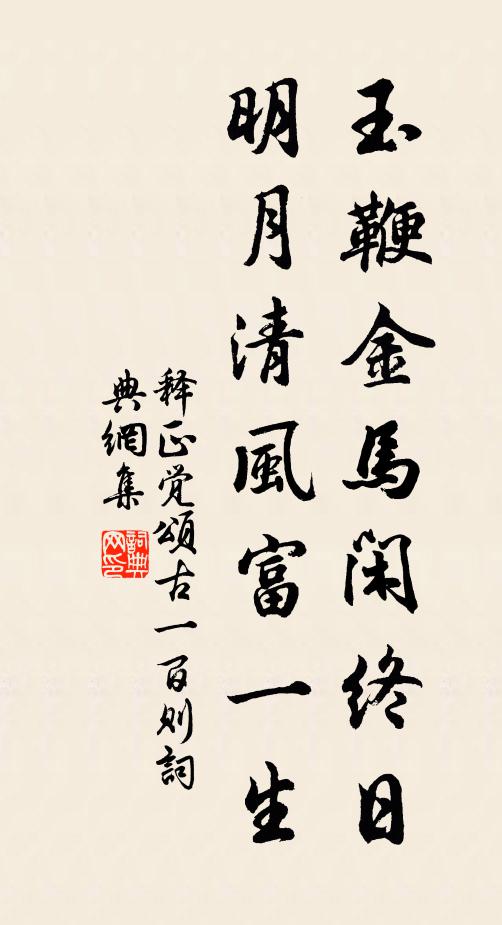 玉鞭金馬閑終日
明月清風富一生
释正觉頌古一百则詞
典網集
詞典
网印